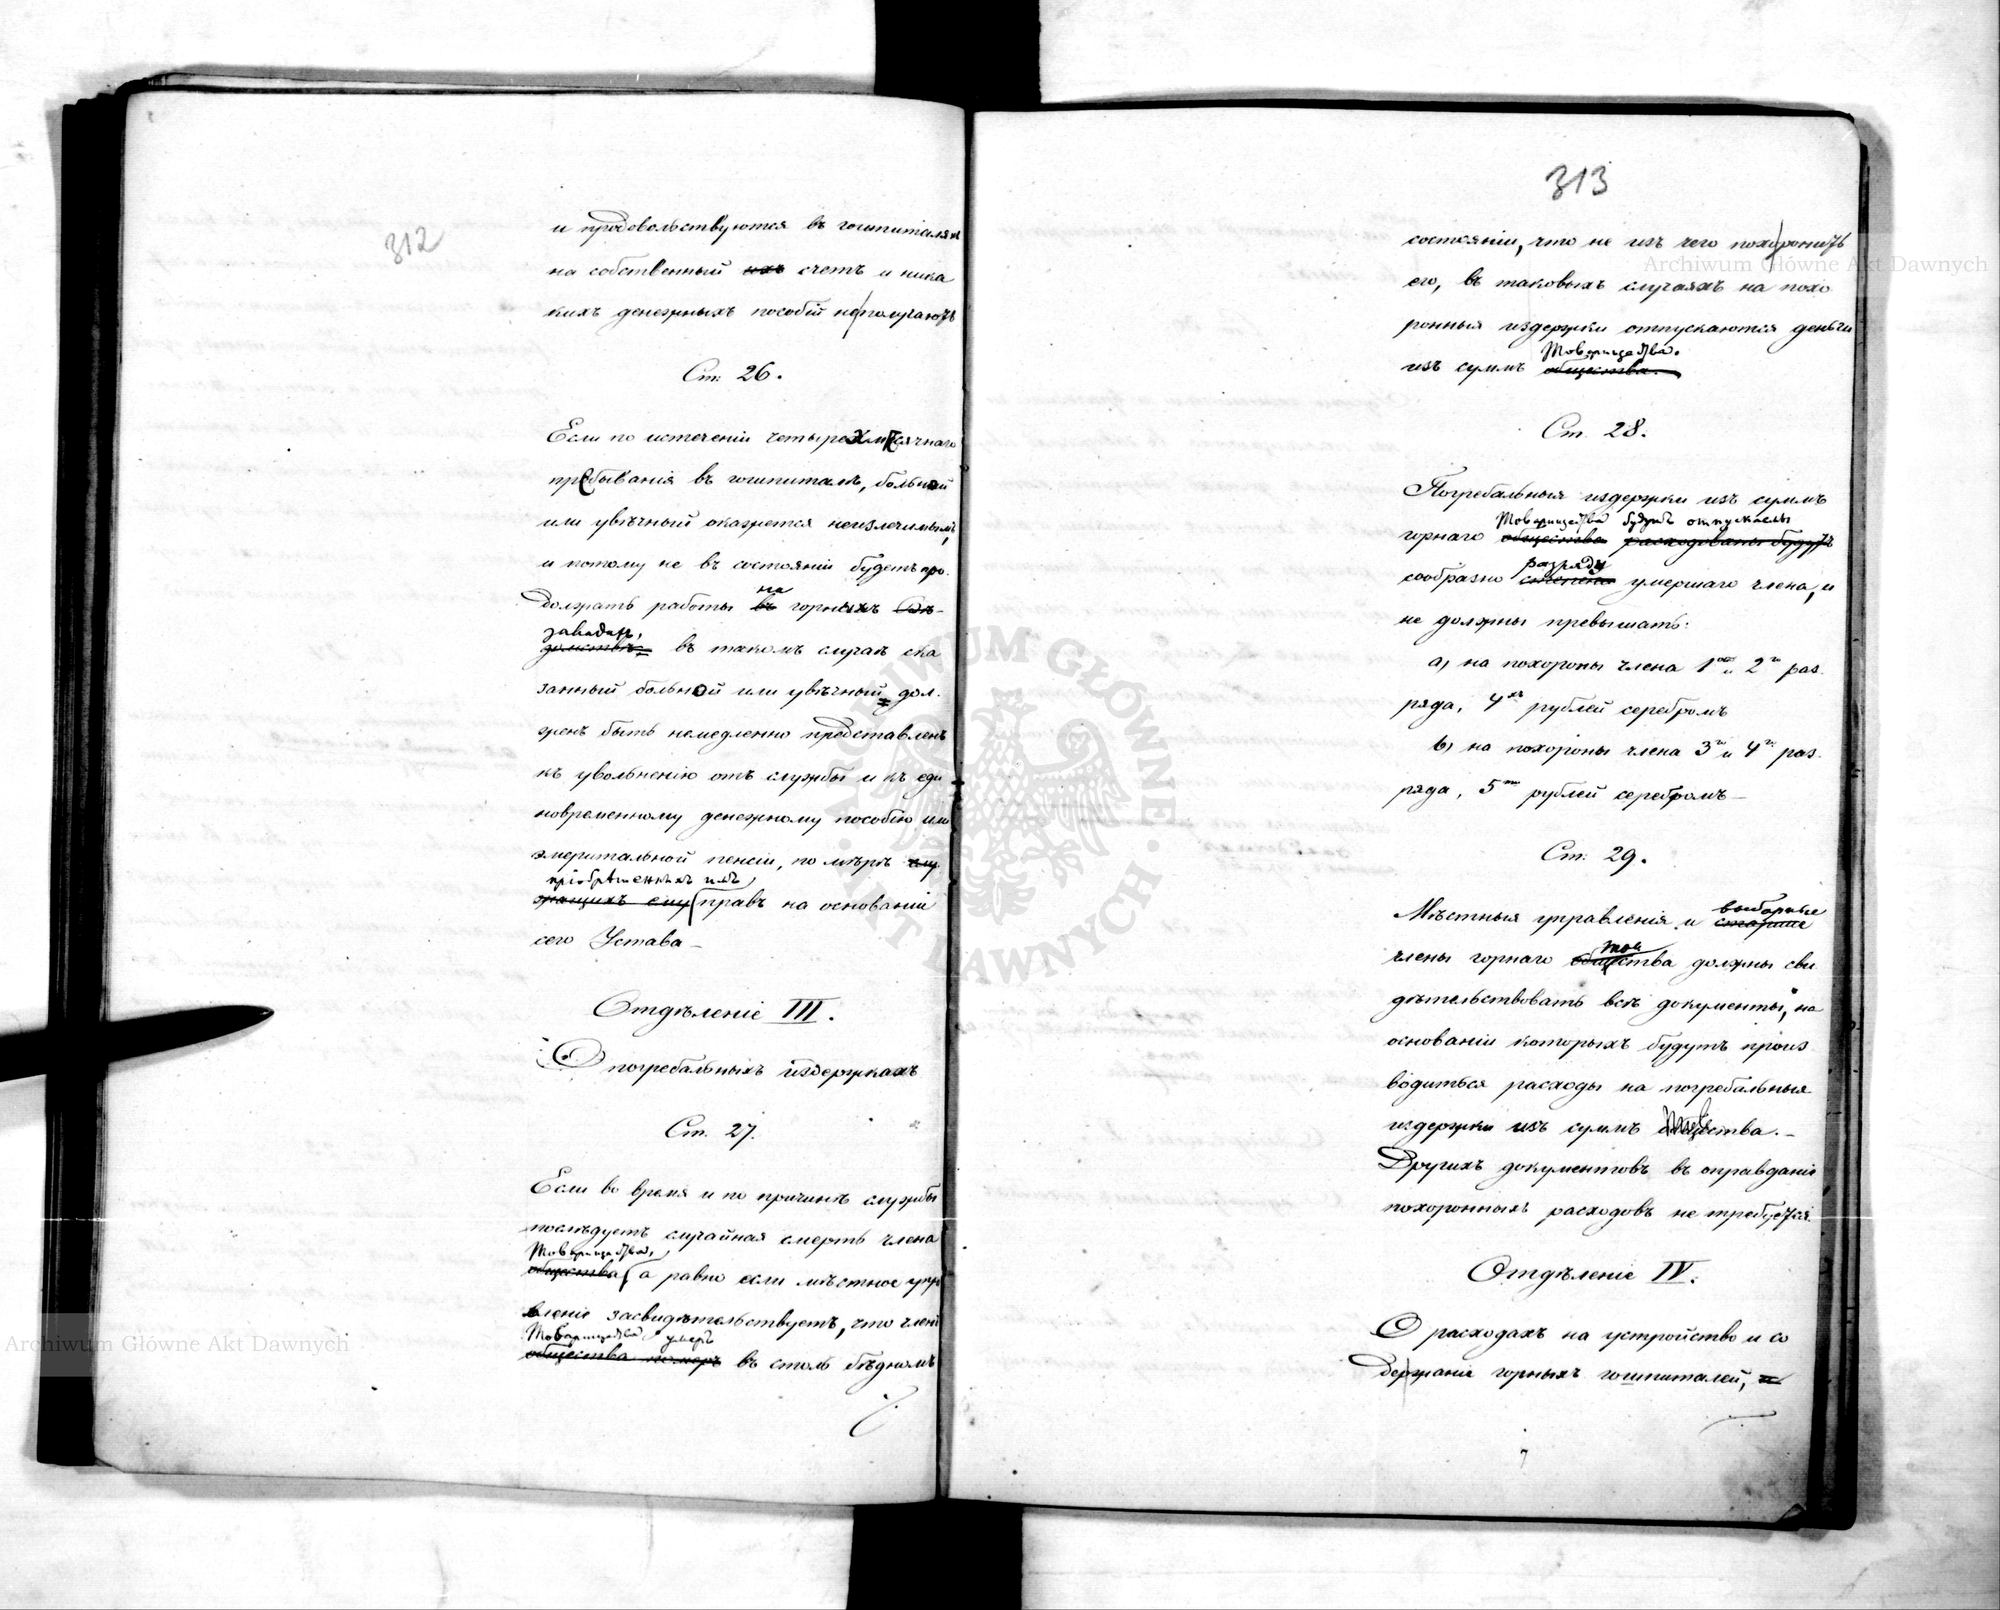 312
и продовольствуются въ гошпиталяхъ
на собственный ихъ счетъ и ника
кихъ денежныхъ пособій не получаютъ
Ст: 26.
Если по истеченіи четырехмѣсячнаго
пребыванія въ гошпиталѣ, больной
или увѣчный окажется неизлечимымъ,
и потому не въ состояніи будетъ про-
на
должать работы въ горныхъ Вѣ-
заводахъ,
домствѣ, въ такомъ случаѣ ска
занный больной или увѣчный дол-
женъ быть немедленно представленъ
къ увольненію отъ службы и къ еди
новременному денежному пособію или
эмеритальной пенсіи, по мѣрѣ слу
пріобрѣтенныхъ имъ
жащихъ ему правъ на основаніи
сего Устава
Отдѣленіе III.
О погребальныхъ издержкахъ
Ст. 27.
Если во время и по причинѣ службы
послѣдуетъ случайная смерть члена
Товарищества,
общества, а равно если мѣстное упра
вленіе засвидѣтельствуетъ, что членъ
Товарищества умеръ
общества померъ въ столь бѣдномъ
313
состояніи, что не изъ чего похоронить
его, въ таковыхъ случаяхъ на похо
ронныя издержки отпускаются деньги
Товарищества.
изъ суммъ общества.
Ст. 28.
Погребальныя издержки изъ суммъ
Товарищества будутъ отпускаемы
горнаго общества расходованы будутъ
разряду
сообразно степени умершаго члена, и
не должны превышать:
а) на похороны члена 1го и 2го раз.
ряда, 4хъ рублей серебромъ
b) на похороны члена 3го и 4го раз.
ряда, 5ти рублей серебромъ
Ст: 29.
выборные
Мѣстныя управленія и старшіе
Тов
члены горнаго общества должны сви
дѣтельствовать всѣ документы, на
основаніи которыхъ будутъ произ
водиться расходы на погребальныя
издержки изъ суммъ общества.
Другихъ документовъ въ оправданіе
похоронныхъ расходовъ не требуется.
Отдѣленіе IV.
О расходахъ на устройство и со
держаніе горныхъ гошпиталей, и
7
Archiwum Główne Akt Dawnych
Archiwum Główne Akt Dawnych
ARCHIWUM GŁÓWNE AKT DAWNYCH